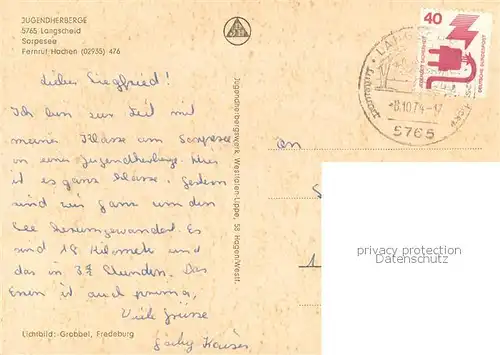 JUGENDHERBERGE
5765 Langscheid
Sorpesee
Fernruf Hachen (02935) 476
Lieber Siegfried!
Ich bin zur Zeit mit
meiner Klasse am Sorpesee
in einer Jugendherberge. Hier
ist es ganz klasse. Gestern
sind wir ganz um den
See herumgewandert. Es
sind 18 Kilometer und
das in 3 3/4 Stunden. Das
Essen ist auch prima.
Viele Grüsse
Lichtbild: Grobbel, Fredeburg
Jugendherbergswerk Westfalen-Lippe, 58 Hagen/Westf.
40
DEUTSCHE BUNDESPOST
-8.10.74-17
5765
An
privacy protection
Datenschutz